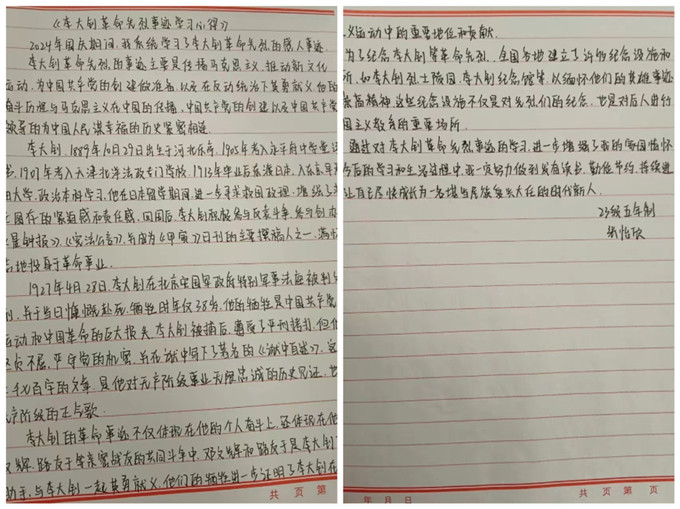 《李大钊革命先烈事迹学习心得》
2024年国庆期间，我系统学习了李大钊革命先烈的感人事迹。
李大钊革命先烈的事迹主要是传播马克思主义、推动新文化
运动，为中国共产党的创建做准备，以及在反动统治下英勇就义。他的
奋斗历程与马克思主义在中国的传播、中国共产党的创建以及中国共产党
领导的为中国人民谋幸福的历史紧密相连。
李大钊，1889年10月29日出生于河北乐亭，1905年考入永平府中学堂
1907年考入天津北洋法政专门学校，1913年毕业后东渡日本，入东京早
田大学，政治本科学习，他在日本留学期间，进一步寻求救国政理，增强了
国存的紧迫感和责任感，回国后，李大钊积极参与反袁斗争，参与创办
星钟报》、《宪法公言》，并成为《甲寅》日刊的主要撰稿人之一，满
地投身于革命事业。
1927年4月28日，李大钊在北京安国军政府特别军事法庭被判
刑，并于当日慷慨赴死，牺牲时年仅38岁，他的牺牲是中国共产党
运动和中国革命的巨大损失，李大钊被捕后，遭受了严刑拷打，但他
坚贞不屈，严守党的机密，并在狱中写下了著名的《狱中自述》，这
千七百字的文章，是他对无产阶级事业无限忠诚的历史见证，也
产阶级的正气歌。
李大钊的革命事迹不仅体现在他的个人奋斗上，还体现在他
文辉、路友于等亲密战友的共同斗争中，邓文辉和路友于是李大钊
助手，与李大钊一起英勇就义，他们的牺牲进一步证明了李大钊在
共 页 第
义运动中的重要地位和贡献。
为了纪念李大钊等革命先烈，全国各地建立了许多纪念设施和
所，如李大钊烈士陵园、李大钊纪念馆等，以缅怀他们的英雄事迹
崇高精神，这些纪念设施不仅是对先烈们的纪念，也是对后人进行
国主义教育的重要场所。
通过对李大钊革命先烈事迹的学习，进一步增强了我的爱国情怀
今后的学习和生活过程中，我一定努力做到发奋读书、勤俭节约、持续
让自己尽快成长为一名堪当民族复兴大任的时代新人。
23级五年制
张怡欣
年 月 日
共 页 第 页